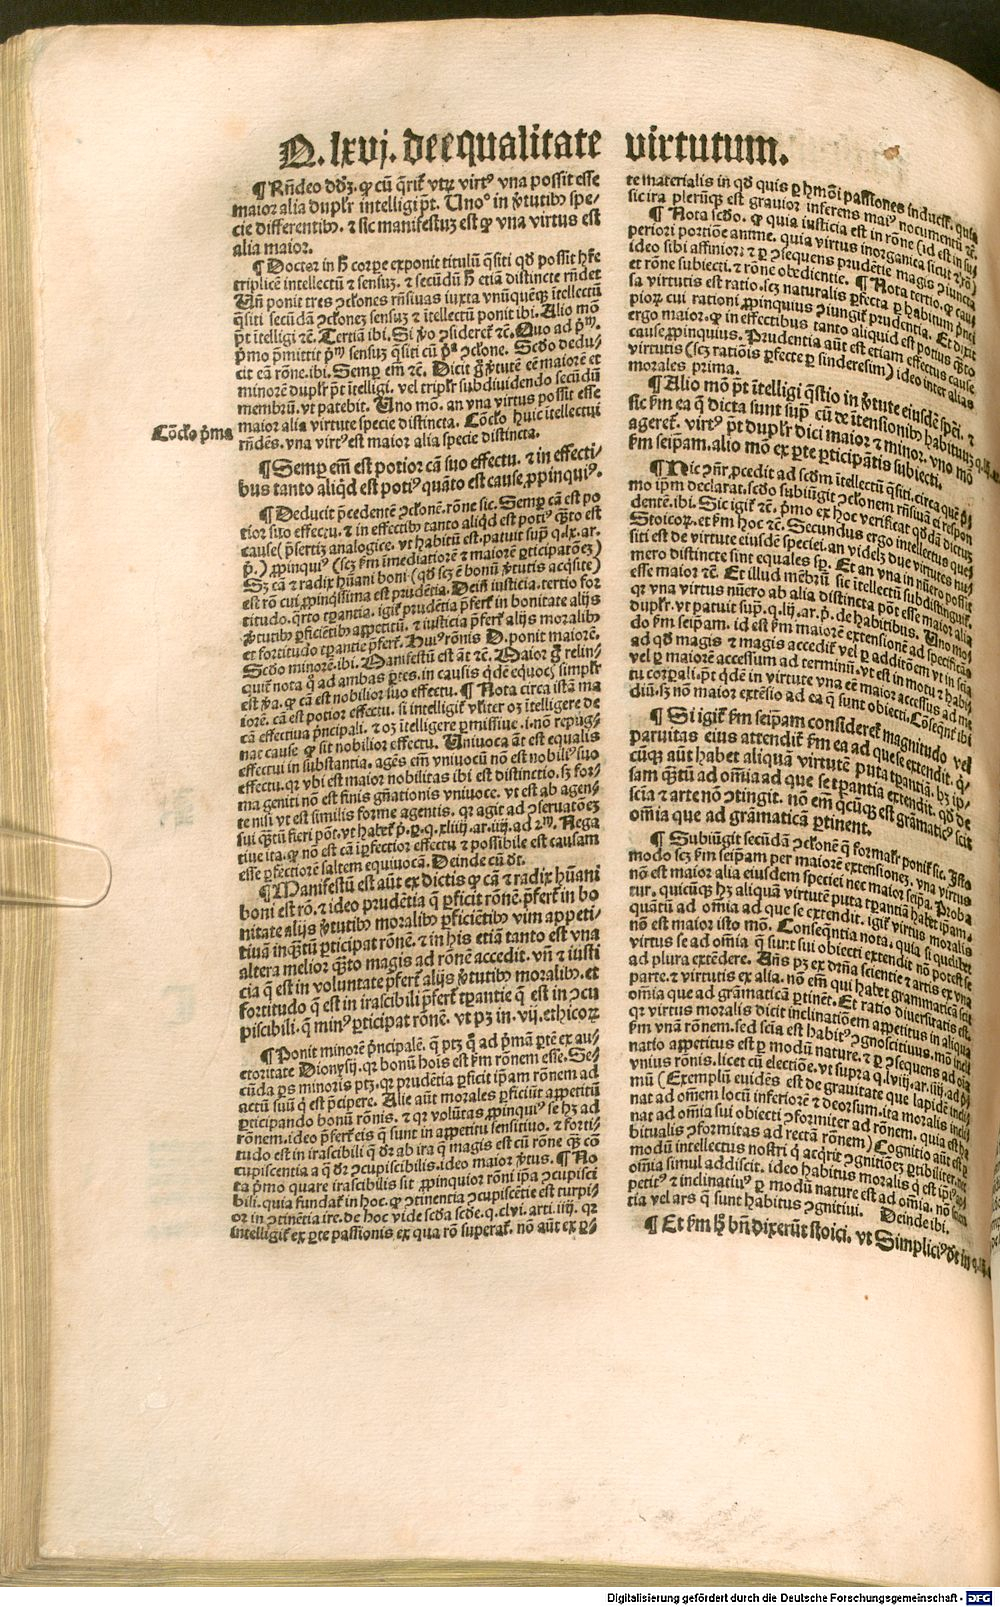 Q. lxvj. de equalitate virtutum.
¶ Rñdeo dd'z. ꝙ cū q̄rit̃ vtrū virt⁹ vna possit esse
maior alia dupl'r intelligi p̄t. Uno° in ṽtutib⁹ spe-
cie differentib⁹. ⁊ sic manifestuz est ꝙ vna virtus est
alia maior.
¶ Doctor in h̄ corpe exponit titulū q̄siti qđ possit h̄re
triplicē intellectū ⁊ sensuz. ⁊ secūdū h̄ etiā distincte rñdet
Uñ ponit tres ↄclones rñsiuas iuxta vnūquēq̨ ītellectū
q̄siti secūdā ↄclonez sensuz ⁊ ītellectū ponit ibi. Alio mō
p̄t ītelligi ⁊c̄. Tertiā ibi. Si ṽo ↄsideret̃ ⁊c̄. Quo ad p̄ᵐ.
p̄mo p̄mittit p̄ᵐ sensuz q̄siti cū p̄ᵃ ↄclone. Scđo dedu-
cit eā rōne. ibi. Semp em̄ ⁊c̄. Dicit g̊ ṽtutē eē maiorē et
minorē dupl'r p̄t ītelligi. vel tripl'r subdiuidendo secūdū
membrū. vt patebit. Uno mō. an vna virtus possit esse
maior alia virtute specie distincta. Cōclo huic ītellectui
Cōclo p̄ma rñdēs. vna virt⁹ est maior alia specie distincta.
¶ Semp em̄ est potior cā suo effectu. ⁊ in effecti-
bus tanto aliqđ est poti⁹ quāto est cause ꝓpinqui⁹.
¶ Deducit p̄cedentē ↄclonē. rōne sic. Semp cā est po
tior suo effectu. ⁊ in effectib⁹ tanto aliqđ est poti⁹ q̄̄to est
cause (p̄sertiz analogice. vt habitū est. patuit sup̄ q. lx. ar.
p̄.) ꝓpinqui⁹ (scz fm īmediatiorē ⁊ maiorē ꝑticipatōez)
Sz cā ⁊ radix hūani boni (qđ scz ē bonū ṽtutis acq̄site)
est rō cui ꝓpinq̄ssima est prudētia. Dein̄ iusticia. tertio for
titudo. q̄rto tꝑantia. igit̃ prudētia p̄fert̃ in bonitate alijs
ṽtutib⁹ ꝑficiētib⁹ appetitū. ⁊ iusticia p̄fert̃ alijs moralib⁹
et fortitudo tꝑantie p̄fert̃. Hui⁹ rōnis D. ponit maiorē.
Scđo minorē. ibi. Manifestū est āt ⁊c̄. Maior g̊ relin-
quit̃ nota q̊ ad ambas ꝑtes. in causis q̄dē equocℓ simpl'r
est ṽa. ꝙ cā est nobilior suo effectu. ¶ Nota circa istā ma
iorē. cā est potior effectu. si intelligit̃ vl'iter oz ītelligere de
cā effectiua p̄ncipali. ⁊ oz ītelligere ꝑmissiue. i. nō repug-
nat cause ꝙ sit nobilior effectu. Uniuoca āt est equalis
effectui in substantia. agēs em̄ vniuocū nō est nobili⁹ suo
effectu. qr vbi est maior nobilitas ibi est distinctio. sz for-
ma geniti nō est finis gn̄ationis vniuoce. vt est ab agen-
te nisi vt est similis forme agentis. qr agit ad ↄseruatōez
sui q̄̄tū fieri pōt. vt habet̃ p̄. p. q. xliiij. ar. iiij. ad 2ᵐ. Nega
tiue ita. ꝙ nō est cā īpfectior effectu ⁊ possibile est causam
esse ꝑfectiorē saltem equiuocā. Deinde cū đt.
¶ Manifestū est aūt ex dictis ꝙ cā ⁊ radix hūani
boni est rō. ⁊ ideo prudētia q̄ ꝑficit rōnē. p̄fert̃ in bo
nitate alijs ṽtutib⁹ moralib⁹ ꝑficiētib⁹ vim appeti-
tiuā inq̄̄tū ꝑticipat rōnē. ⁊ in his etiā tanto est vna
altera melior q̄̄to magis ad rōnē accedit. vn̄ ⁊ iusti
cia q̄ est in voluntate p̄fert̃ alijs ṽtutib⁹ moralib⁹. et
fortitudo q̄ est in irascibili p̄fert̃ tꝑantie q̄ est in ↄcu
piscibili. q̄ min⁹ ꝑticipat rōnē. vt pz in. vij. ethicoꝝ
¶ Ponit minorē p̄ncipalē. q̄ ptz q̊ ad p̄mā ꝑtē ex au-
ctoritate Dionysij. qr bonū hoīs est fm rōnem esse. Se-
cūda ꝑs minoris ptz. qr prudētia ꝑficit ip̄am rōnem ad
actū suū q̄ est p̄cipere. Alie aūt morales ꝑficiūt appetitū
ꝑticipando bonū rōnis. ⁊ qr volūtas ꝓpinqui⁹ se hz ad
rōnem. ideo p̄fert̃ eis q̄ sunt in appetitu sensitiuo. ⁊ forti-
tudo est in irascibili q̄ đr ab ira q̄ magis est cū rōne q̄̄ cō
cupiscentia a q̄ đr ↄcupiscibilis. ideo maior ṽtus. ¶ No
ta p̄mo quare irascibilis sit ꝓpinquior rōni ip̄a ↄcupisci
bili. quia fundat̃ in hoc. ꝙ ↄtinentia ↄcupiscētie est turpi-
or in ↄtinētia ire. de hoc vide scđa scđe. q. clvi. arti. iiij. qr
intelligit̃ ex ꝑte passionis ex qua rō superat̃. nō aūt ex ꝑ-
te materialis in qđ quis ꝑ hmōi passiones inducit̃. quia
sic ira plerūq̨ est grauior inferens mai⁹ nocumentū ⁊c̄.
¶ Nota scđo. ꝙ quia iusticia est in rōne (id est in su
periori portiōe anime. quia virtus inorganica sicut ⁊ rō)
ideo sibi affinior: ⁊ ꝑ ↄsequens prudētie magis ↄiuncta
et rōne subiecti. ⁊ rōne obedientie. ¶ Nota tertio. ꝙ cau
sa virtutis est ratio. scz naturalis ꝑfecta ꝑ habitum p̄nci
pioꝝ cui rationi ꝓpinquius ↄiungit̃ prudentia. Et dixit
ergo maior. ꝙ in effectibus tanto aliquid est potius q̄̄to
cause ꝓpinquius. Prudentia aūt est etiam effectus cause
virtutis (scz ratiōis ꝑfecte ꝑ sinderesim) ideo inter alias
morales prima.
¶ Alio mō p̄t ītelligi q̄stio in ṽtute eiusdē spēi. ⁊
sic fm ea q̄ dicta sunt sup̄ cū de ītensionib⁹ habituuz q. lij.
ageret̃. virt⁹ p̄t dupl'r dici maior ⁊ minor. vno mō
fm seip̄am. alio mō ex ꝑte ꝑticipātis subiecti.
¶ Hic ↄn̄r. ꝓcedit ad scđm ītellectū q̄siti. circa quē p̄-
mo ip̄m declarat. scđo subiūgit ↄclonem rñsiuā ei respon
dentē. ibi. Sic igit̃ ⁊c̄. p̄mo ex hoc verificat qđdā dictuz
Stoicoꝝ. et fm hoc ⁊c̄. Secundus ergo intellectus que-
siti est de virtute eiusdē speciei. an videlz due virtutes nu-
mero distincte sint equales sp̄. Et an vna in nūero possit
esse maior ⁊c̄. Et illud mēbrū sic ītellectū subdistinguit̃.
qr vna virtus nūero ab alia distincta pōt esse maior alia
dupl'r. vt patuit sup̄. q. lij. ar. p̄. de habitibus. Uno mo-
do fm seip̄am. id est fm maiorē extensionē ad specificata
ad qđ magis ⁊ magis accedit̃ vel ꝑ additōem vt in scia
vel ꝑ maiorē accessum ad terminū. vt est in motu ⁊ habi
tu corꝑali. p̄t q̄dē in virtute vna eē maior accessus ad me
diū. sz nō maior extēsio ad ea q̄ sunt obiecti. Cōseq̄nt̃ ibi
¶ Si igit̃ fm seip̄am consideret̃ magnitudo vel
paruitas eius attendit̃ fm ea ad que se extendit. q̄-
cūq̨ aūt habet aliquā virtutē puta tꝑantiā. hz ip̄-
sam q̄̄tū ad oīa ad que se tꝑantia extendit. qđ de
scia ⁊ arte nō ↄtingit. nō em̄ q̄cūq̨ est grāmatic⁹ scit
oīa que ad grāmaticā ꝑtinent.
¶ Subiūgit secūdā ↄclonē q̄ formal'r ponit̃ sic. Isto
modo scz fm seip̄am per maiorē extensionez. vna virtus
nō est maior alia eiusdem speciei nec maior seip̄a. Proba
tur. quicūq̨ hz aliquā virtutē puta tꝑantiā habet ip̄am.
quātū ad oīa ad que se extendit. igit̃ virtus moralis
nō est maior isto mō. Conseq̄ntia nota. quia si quelibet
virtus se ad oīa q̄ sunt sui obiecti extendit nō potest se
ad plura extēdere. An̄s pz ex dr̄na scientie ⁊ artis ex vna
parte. ⁊ virtutis ex alia. nō em̄ qui habet grammaticā scit
oīa que ad grāmaticā ꝑtinēt. Et ratio diuersitatis est.
qr virtus moralis dicit inclinatiōem appetitus in aliqua
fm vnā rōnem. sed scia est habit⁹ ↄgnoscitiuus. mō incli
natio appetitus est ꝑ modū nature. ⁊ ꝑ ↄsequens ad oīa
vnius rōnis. licet cū electiōe. vt supra q. lviij. ar. iiij. ad p̄-
mū (Exemplū euidēs est de grauitate que lapidē incli
nat ad omnem locū inferiorē ⁊ deorsum. ita moralis incli
nat ad oīa sui obiecti ↄformiter ad rōnem. quia est ha
bitualis ↄformitas ad rectā rōnem) Cognitio aūt est ꝑ
modū intellectus nostri q̄ acq̄rit ↄgnitiōez ꝑtibiliter. nec
oīa simul addiscit. ideo habitus moralis q̄ est ip̄i⁹ ap-
petit⁹ ⁊ inclinatiu⁹ ꝑ modū nature est ad oīa. nō scien
tia vel ars q̄ sunt habitus ↄgnitiui. Deinde ibi.
¶ Et fm h̄ bn̄ dixerūt stoici. vt Simplici⁹ đt in
Digitalisierung gefördert durch die Deutsche Forschungsgemeinschaft - DFG